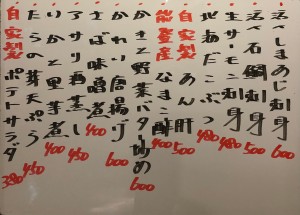 活〆しまあじ刺身 600
活〆石鯛刺身 500
生サーモン刺身 480
地あだこぶつ 480
自家製あん肝 500
能登産なまこ酢 400
かきと野菜バター炒め 600
かれい唐揚げ 600
さば味噌煮 400
アサリ酒蒸し 450
いかと里芋煮
たらの芽天ぷら 450
自家製ポテトサラダ 380